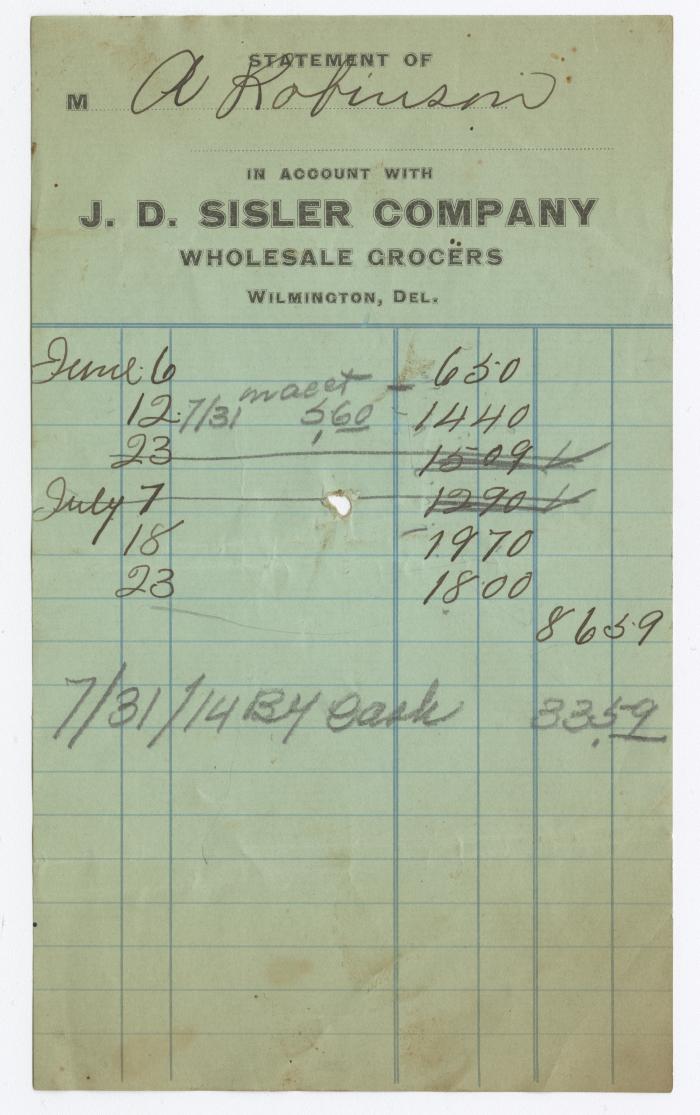 STATEMENT OF
M A Robinson
IN ACCOUNT WITH
J. D. SISLER COMPANY
WHOLESALE GROCERS
WILMINGTON, DEL.
June 6 650
12 7/31 5,60 1440
23 1509
July 7 1290
18 1970
23 1800
8659
7/31/14 By Cash 33.59